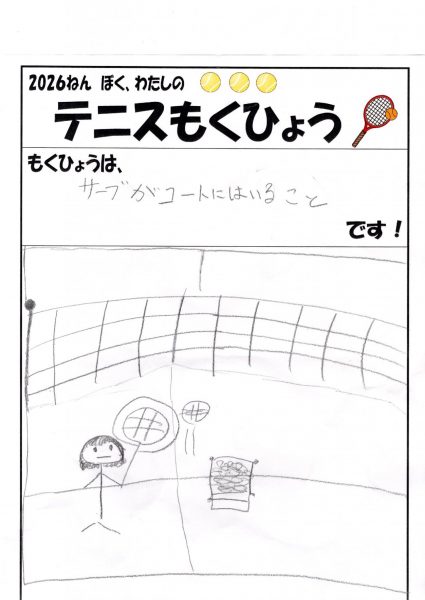 2026ねん ぼく、わたしの
テニスもくひょう
もくひょうは、
サーブがコートにはいること
です！